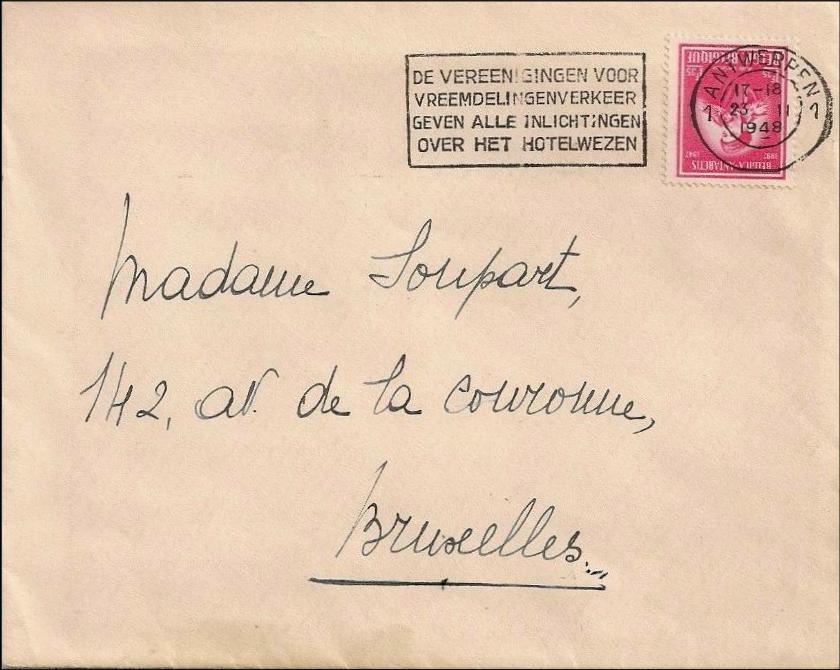 DE VEREENIGINGEN VOOR
VREEMDELINGENVERKEER
GEVEN ALLE INLICHTINGEN
OVER HET HOTELWEZEN
1 ANTWERPEN 1
17-18
23 11
1948
BELGICA-ANTARCTIS
1897 1947
Madame Soupart,
142, av. de la Couronne,
Bruxelles.